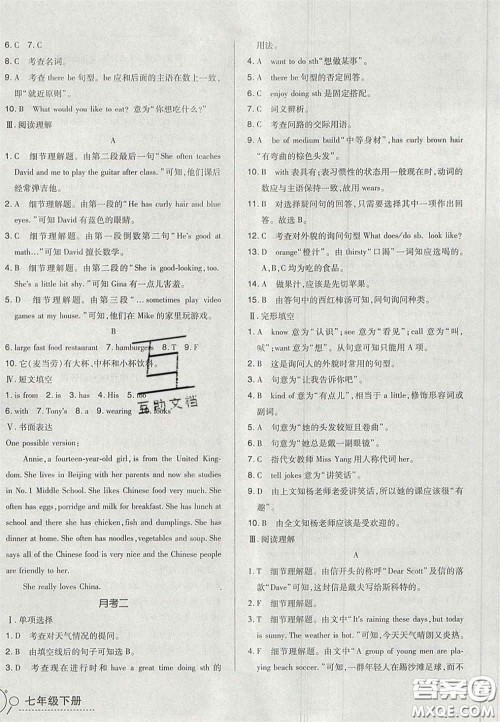 6. C　7. C
8. C　考查名词。
9. A　考查 there be 句型。be 应和后面的主语在数上一致，
即“就近原则”。
10. B　What would you like to eat? 意为“你想吃什么？”
Ⅲ. 阅读理解
A
1. C　细节理解题。由第二段最后一句“She often teaches
David and me to play the guitar after class.”可知，他们课后
经常弹吉他。
2. B　细节理解题。由第一段的“He has curly hair and blue
eyes.”可知 David 有蓝色的眼睛。
3. D　细节理解题。由第一段倒数第二句“He's good at
math...”可知 David 擅长数学。
4. C　细节理解题。由第二段的“She is good-looking, too.
She's a little bit shy.”可知她有一点儿害羞。
5. D　细节理解题。由第三段的“... sometimes play video
games at my house.”可知，他们在 Mike 的家里玩游戏。
B
6. large fast food restaurant　7. hamburgers　8. T　9. F
10. 它(麦当劳)有大杯、中杯和小杯饮料。
Ⅳ. 短文填空
1. is from　2. is　3. has　4. to　5. is
6. with　7. Tony's　8. a　9. wearing　10. looks
Ⅴ. 书面表达
One possible version:
Annie, a fourteen-year-old girl, is from the United King-
dom. She lives in Beijing with her parents and now studies
in No.1 Middle School. She likes Chinese food very much.
She often has eggs, porridge and milk for breakfast. Some-
times she has hamburgers and chicken for lunch. She thinks
Chinese food is very delicious and healthy. She often eats
some Chinese food like dumplings and noodles for supper. She
says all of the Chinese food is very nice and the Chinese
people are very friendly.
She really loves China.
月考二
Ⅰ. 单项选择
1. D　考查对天气情况的提问。
2. B　由后面的句子可知为选 B。
3. C　考查现在进行时和 have a great time doing sth 的
七年级下册
用法。
4. A　want to do sth“想做某事”。
5. B　there be 句型的否定回答。
6. C　enjoy doing sth 是固定搭配。
7. C　词义辨析。
8. C　考查问路的交际用语。
9. A　be of medium build“中等身材”，has curly brown hair
“有弯曲的棕色头发”。
10. D　根据表格，表习惯性的状态用一般现在时，动词的数
应与主语保持一致，故选 D。
11. B　对选择疑问句的答句，只需选择其中一项作出回
答。故选 B。
12. C　考查对外貌的询问句型 What does/do sb. look like?
13. D　orange“橙汁”。由 thirsty“口渴”一词可知选 D。
A、B、C 均为吃的食品。
14. A　做果汁，应先切苹果。
15. B　由答句中的西红柿汤可知，句中询问汤的种类。
Ⅱ. 完形填空
1. A　know 意为“认识”；see 意为“看见”；call 意为“叫，
喊”；want 意为“想要”。故只能用 A 项。
2. B　这是询问人的外貌时常用的句型。
3. A　句意为“让我告诉你吧”。
4. B　kind of 意为“有点儿”，相当于 a little，修饰形容词或
副词。
5. C　句意为“她的头发较短且卷曲”。
6. D　句意为“她总是戴一副眼镜”。
7. C　指代女教师 Miss Yang 用人称代词。
8. C　tell jokes 意为“讲笑话”。
9. D　由上文知杨老师爱讲笑话，所以她的课应该是有
趣的。
10. B　由上文可知杨老师应该是受欢迎的。
Ⅲ. 阅读理解
1. T　细节理解题。由信开头的称呼“Dear Scott”及信的落
款“Dave”可知，这封信是戴夫写给斯科特的。
2. F　细节理解题。由文中“It's raining these days, but today
it's sunny and warm.”可知，今天天气晴朗而且暖和。
3. F　细节理解题。由文中“A group of young men are playing
beach soccer.”可知，一群年轻人在踢沙滩足球，而不
互助文档
答案圈
MXQE.COM